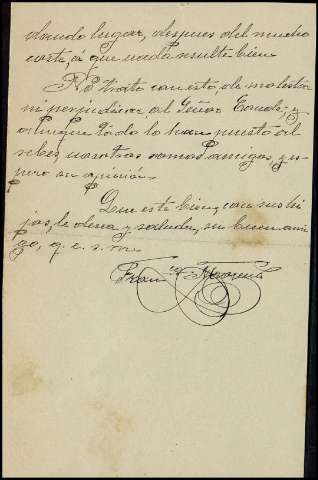 dando lugar, despues del mucho
corte, á que nada resulte bien.
No trato con esto de molestar
ni perjudicar al Señor Conde; y
aunque todo lo han puesto al
rebes, nosotros somos amigos, y es-
pero su opinión.
Que esté bien, con sus hi-
jos, le desea y saluda, su buen ami-
go, q. e. s. m.
Fran.co